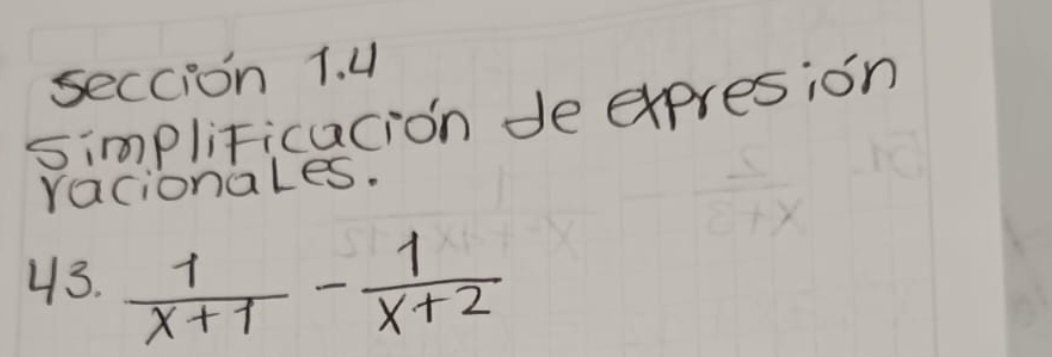 sección 1.4
simplificación de expresión
racionales.
43. 1/(x+1) - 1/(x+2)